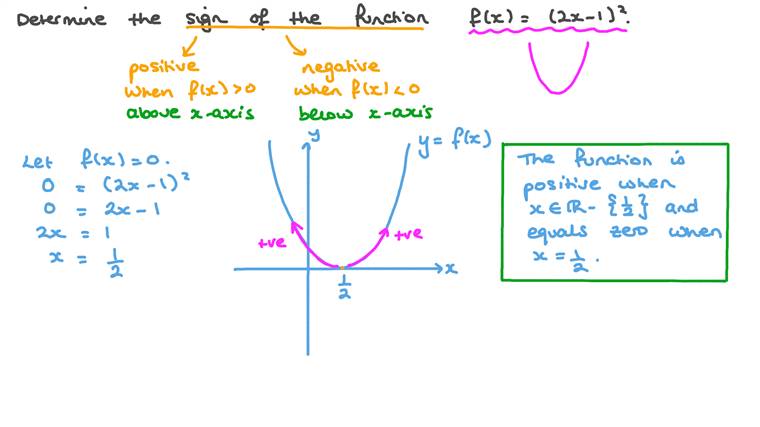 Determine the sign of the function f(x) = (2x-1)².
positive
when f(x)>0
above x-axis
negative
when f(x)<0
below x-axis
Let f(x)=0.
0 = (2x-1)²
0 = 2x-1
2x = 1
x = 1/2
y
y = f(x)
+ve
+ve
x
1/2
The function is
positive when
x∈ℝ-{1/2} and
equals zero when
x = 1/2.